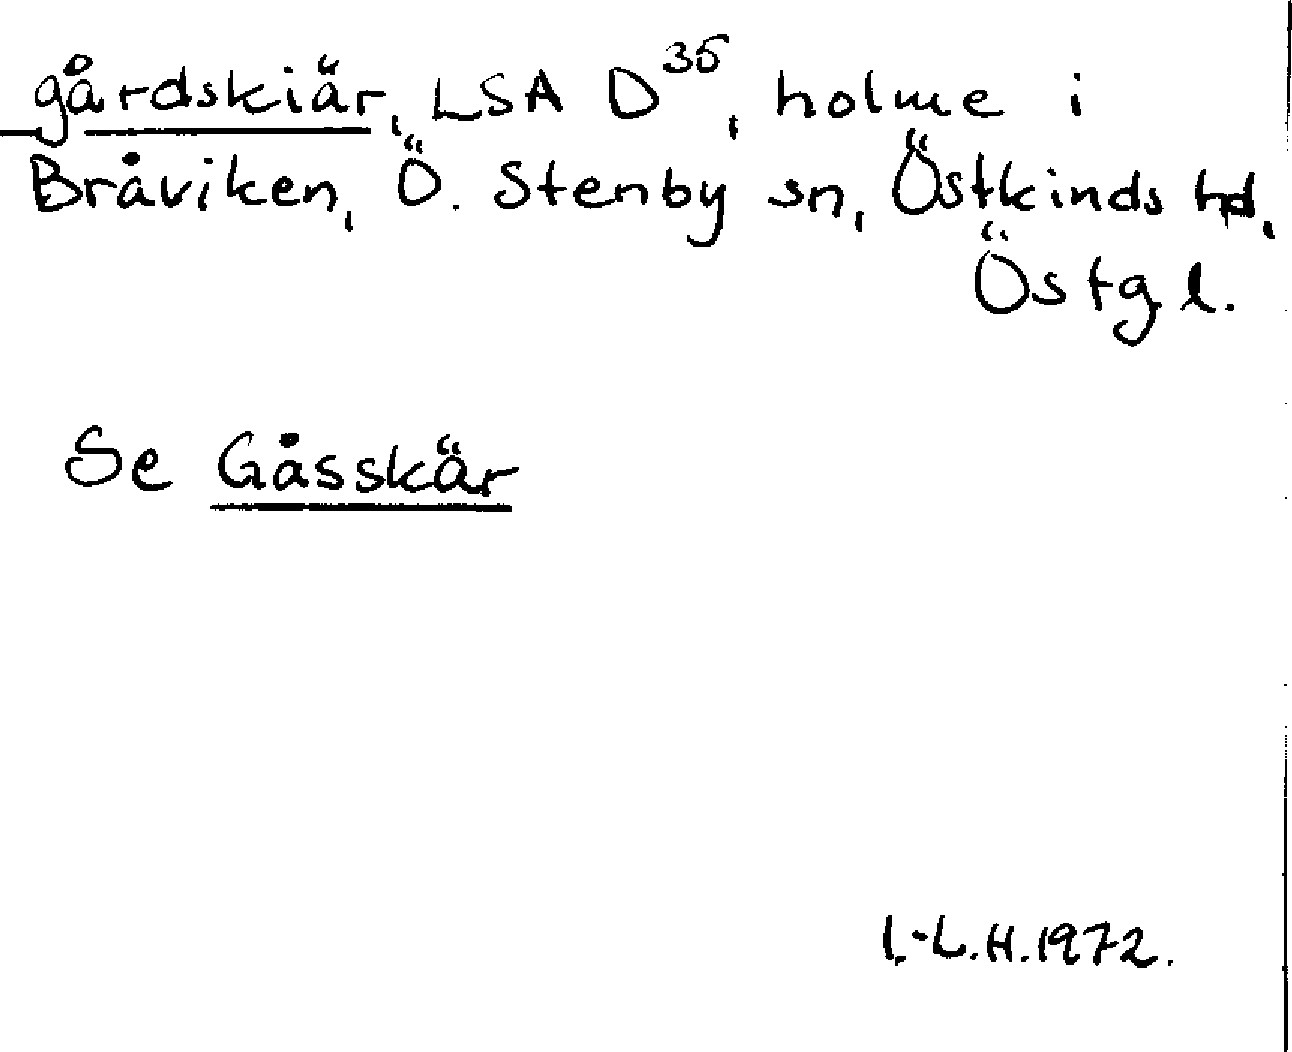 gårdskiär, LSA D³⁵, holme i
Bråviken, Ö. Stenby sn, Östkinds hd,
Östgl.
Se Gåsskär
I.-L.H.1972.